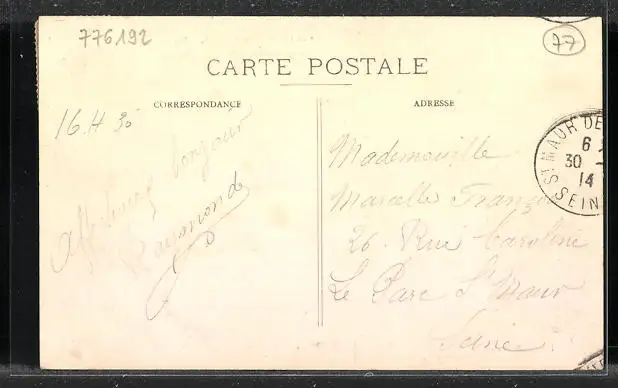 776192
77
CARTE POSTALE
CORRESPONDANCE
ADRESSE
16 H 30
Affectueux bonjour
Raymonde
Mademoiselle
Marcelle Franç
26. Rue Caroline
Le Parc St Maur
Seine
ST MAUR DE
6
30 -
14
SEIN